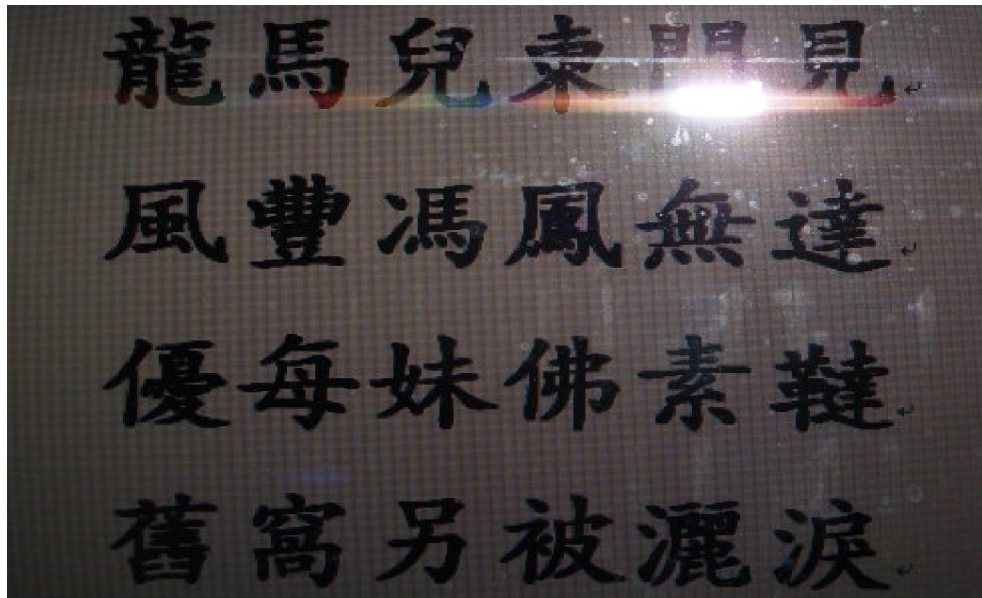 龍馬兒東門見
風豐馮鳳無達
優每妹佛素韃
舊窩另被灑淚